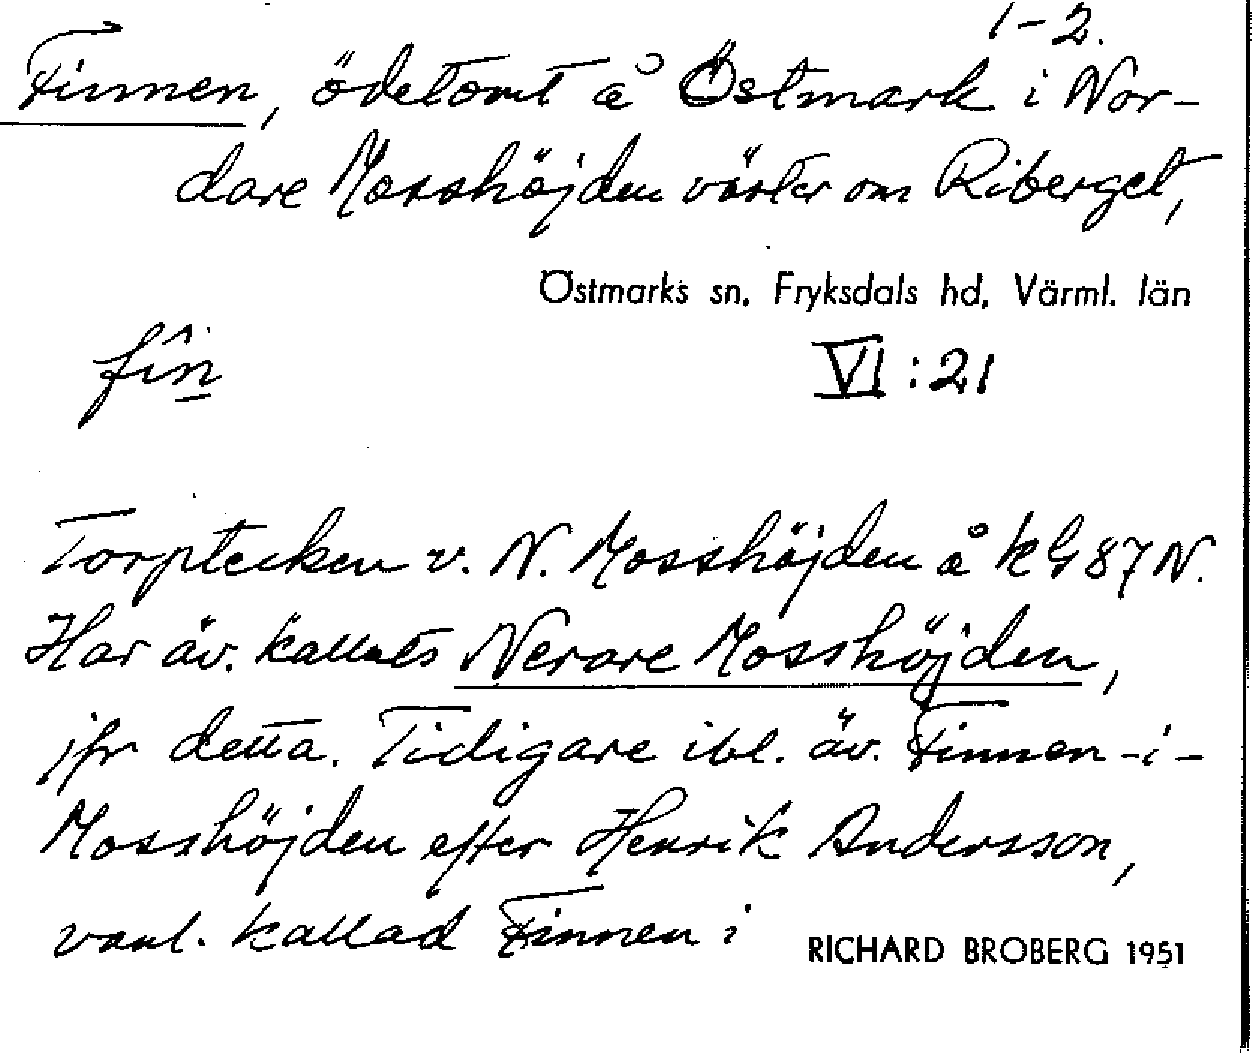 1-2.
Finnen, ödetomt å Östmark i Nor-
dare Mosshöjden väster om Riberget,
Östmarks sn, Fryksdals hd, Värml. län
fîn VI:21
Torptecken v. N. Mosshöjden å kG 87 N.
Har äv. kallats Nerare Mosshöjden,
jfr detta. Tidigare ibl. äv. Finnen-i-
Mosshöjden efter Henrik Andersson,
vanl. kallad Finnen i
RICHARD BROBERG 1951